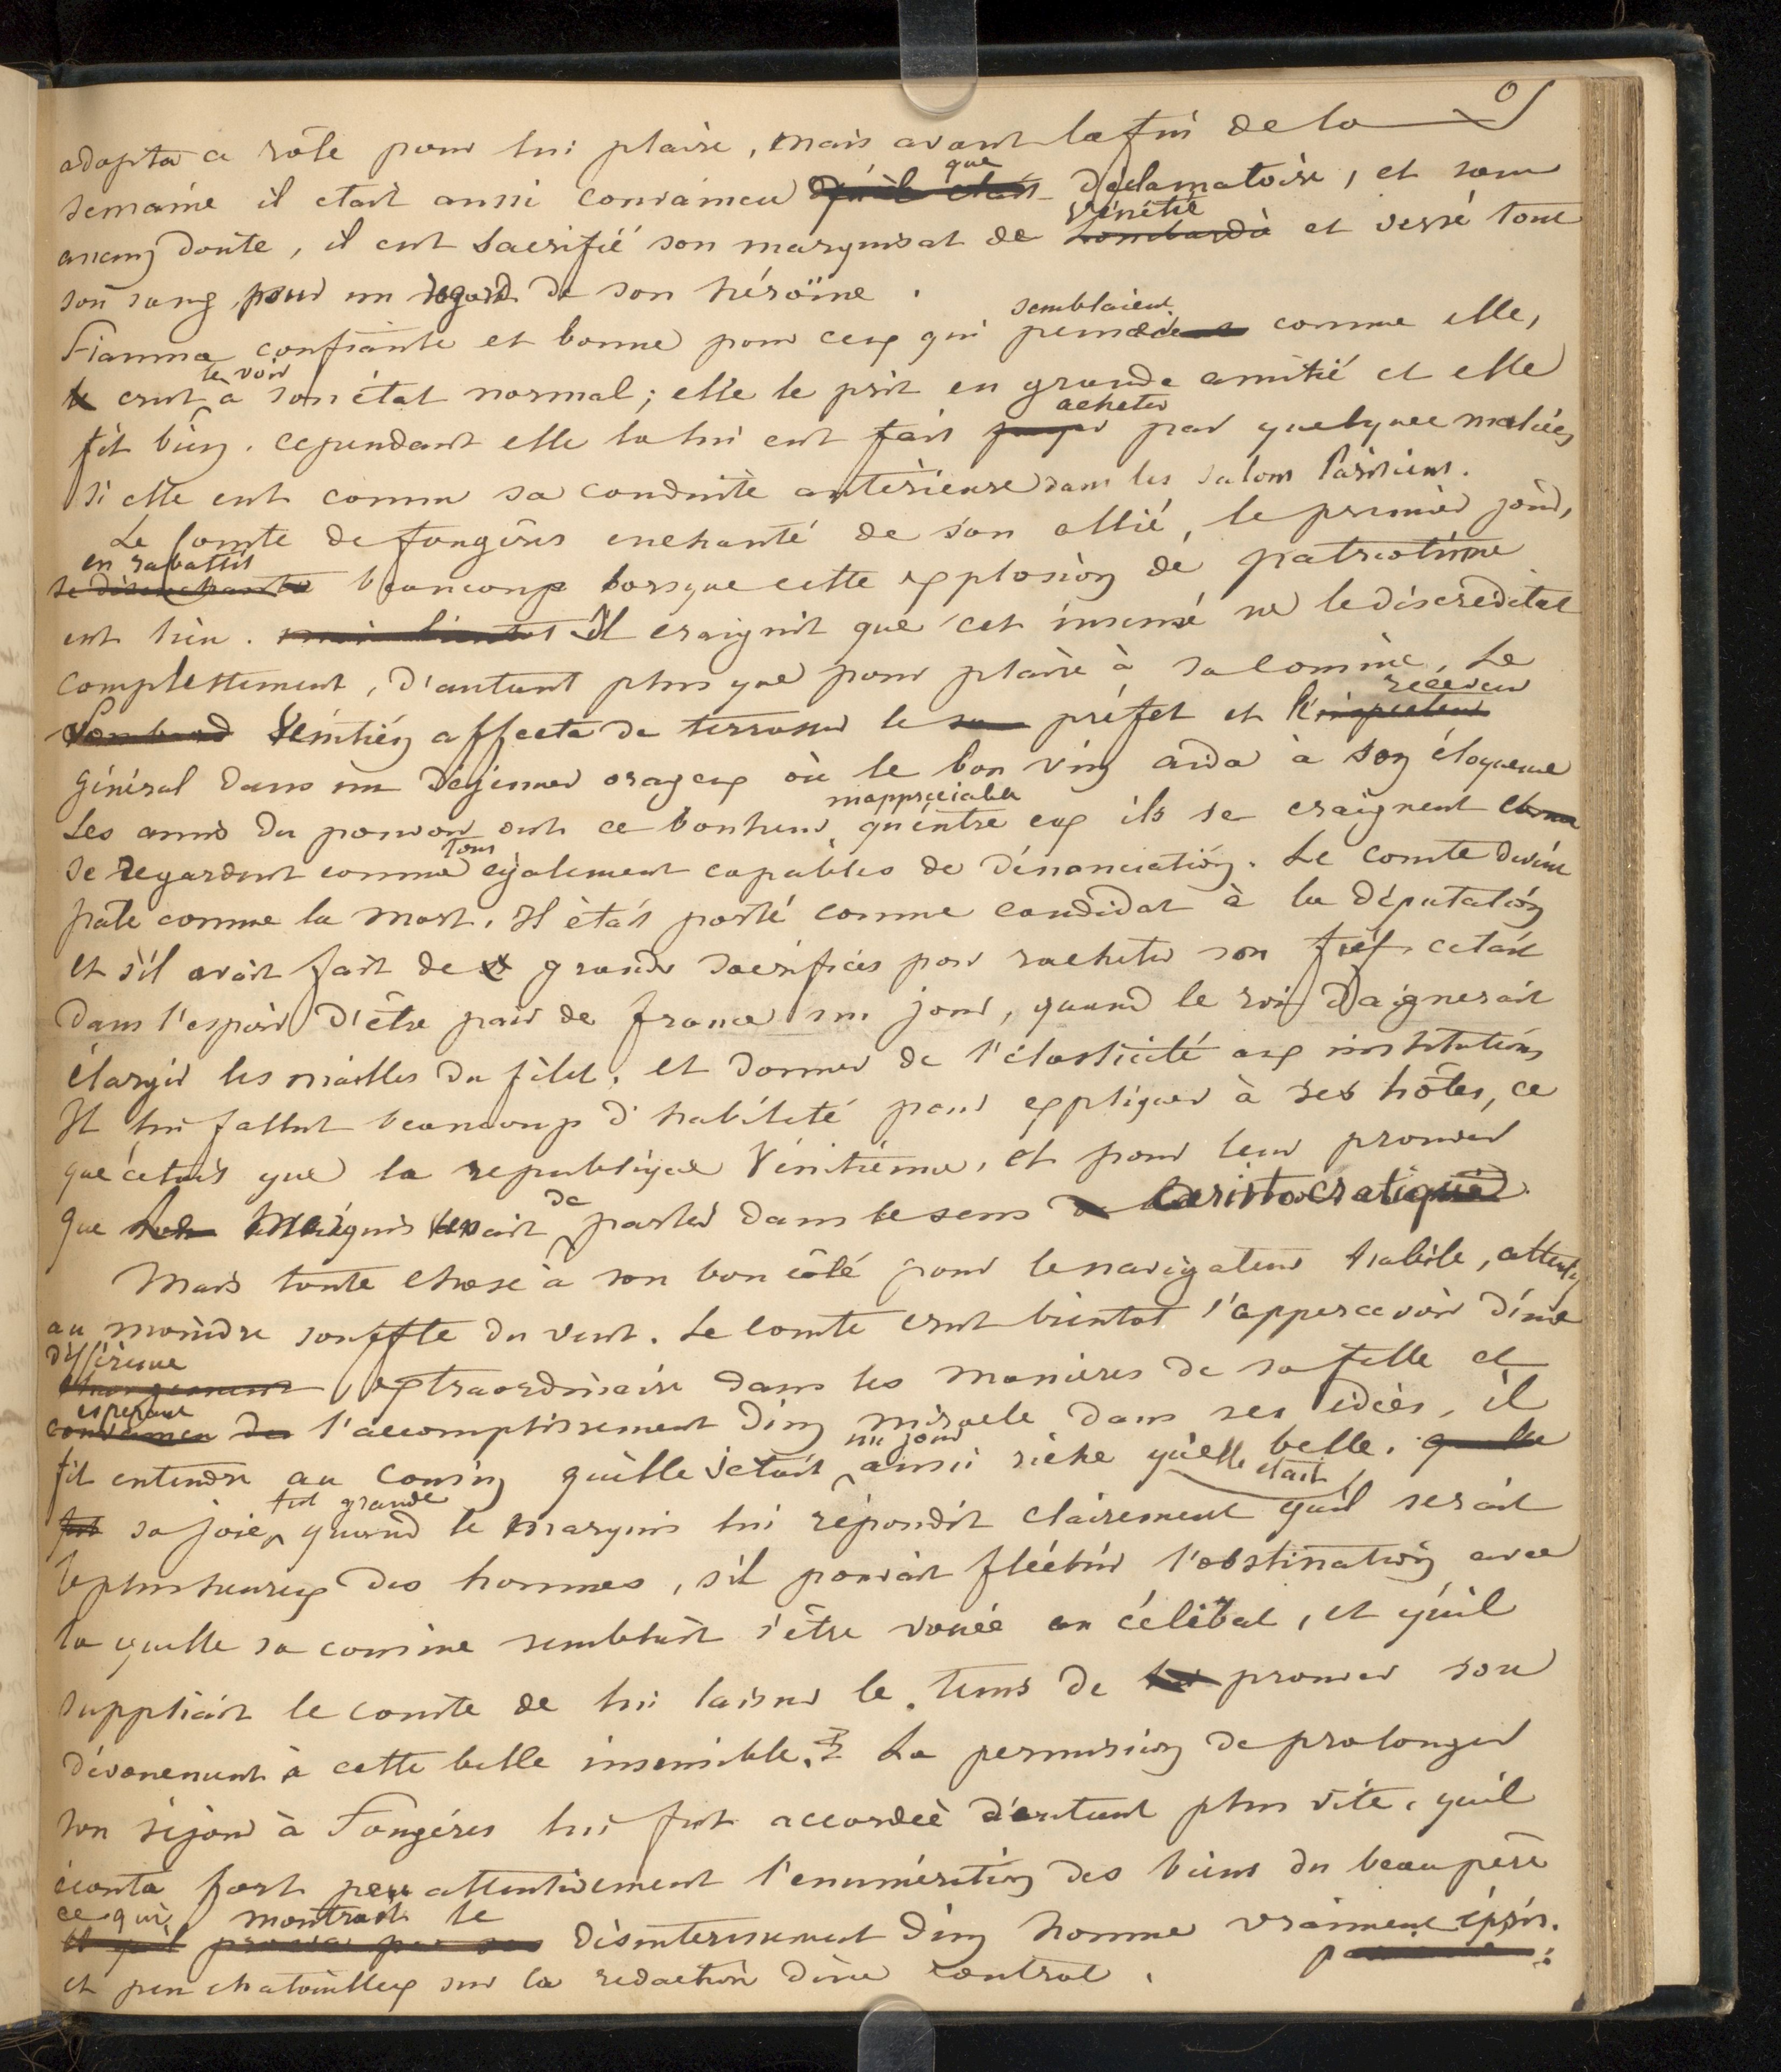 adopta ce rôle pour lui plaire, mais avant la fin de la
semaine il était aussi convaincu que déclamatoire, et sans
aucun doute, il eut sacrifié son marquisat de Vénétie et versé tout
son sang pour un regard de son héroïne.
Fiamma confiante et bonne pour ceux qui semblaient penser comme elle,
crut le voir à son état normal; elle le prit en grande amitié et elle
fit bien. cependant elle la lui eut fait acheter par quelques malices
si elle eut connu sa conduite antérieure dans les salons Parisiens.
Le Comte de fougères enchanté de son allié, le premier jour,
en rabattit beaucoup lorsque cette explosion de patriotisme
eut lieu. Il craignit que cet insensé ne le discréditat
complettement, d'autant plus que pour plaire à sa cousine, Le
Vénitien affecta de terrasser le préfet et le receveur
général dans un déjeuner orageux où le bon vin aida à son éloquence
Les amis du pouvoir ont ce bonheur inappréciable qu'entre eux ils se craignent et
se regardent comme tous également capables de dénonciation. Le comte devint
pale comme la mort. Il était porté comme candidat à la députation
et s'il avait fait de grands sacrifices pour racheter son fief c'etait
dans l'espoir d'être pair de france un jour, quand le roi daignerait
élargir les mailles du filet, et donner de l'élasticité aux institutions
Il lui fallut beaucoup d'habileté pour expliquer à ses hôtes, ce
que c'etait que la republique Vénitienne, et pour leur prouver
que le Marquis venait de parler dans le sens aristocratique.
Mais toute chose à son bon côté pour le navigateur habile, attentif
au moindre souffle du vent. Le comte crut bientot s'appercevoir d'une
différence extraordinaire dans les manières de sa fille et
espérant l'accomplissement d'un miracle dans ses idées, il
fit entendre au cousin qu'elle serait un jour aussi riche qu'elle était belle.
sa joie fut grande quand le marquis lui répondit clairement qu'il serait
le plus heureux des hommes, s'il pouvait fléchir l'obstination avec
la quelle sa cousine semblait s'être vouée au célibat, et qu'il
suppliait le comte de lui laisser le tems de prouver son
dévouement à cette belle insensible. La permission de prolonger
son séjour à Fougères lui fut accordée d'autant plus vite, qu'il
écouta fort peu attentivement l'enumération des biens du beau père
ce qui montrait le désinteressement d'un homme vraiment épris.
et peu chatouilleux sur la redaction d'un contrat.